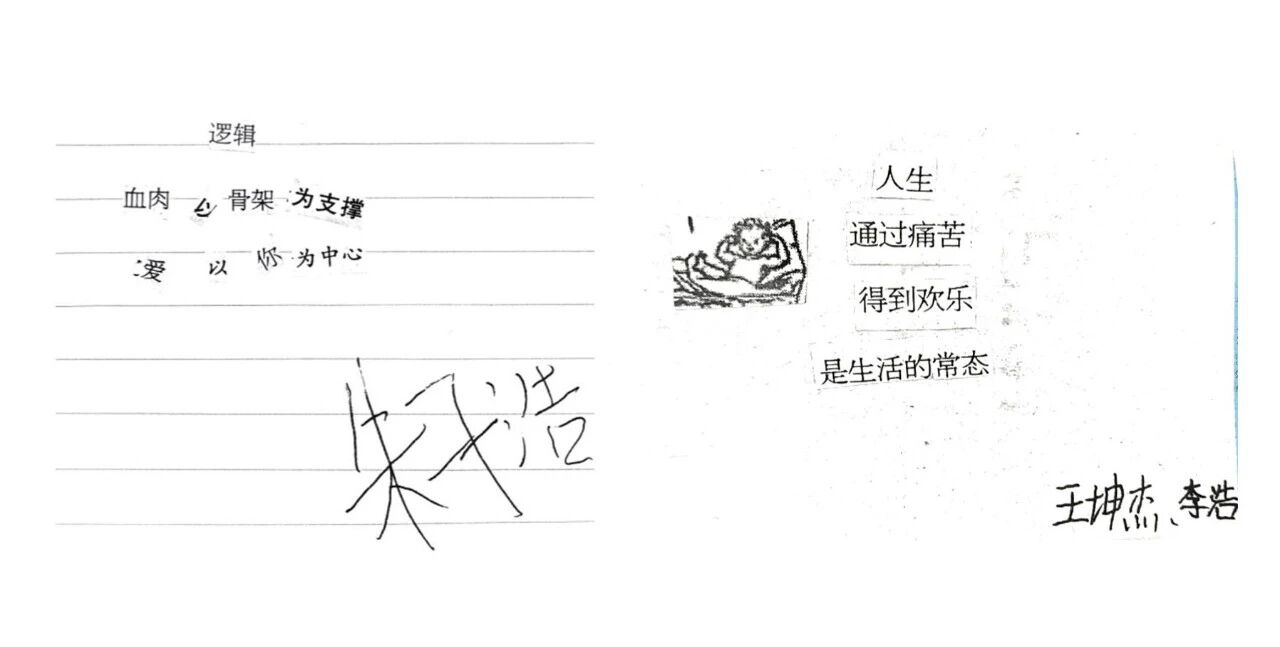 逻辑
血肉 骨架 为支撑
爱 以 你 为中心
人生
通过痛苦
得到欢乐
是生活的常态
王坤杰、李浩